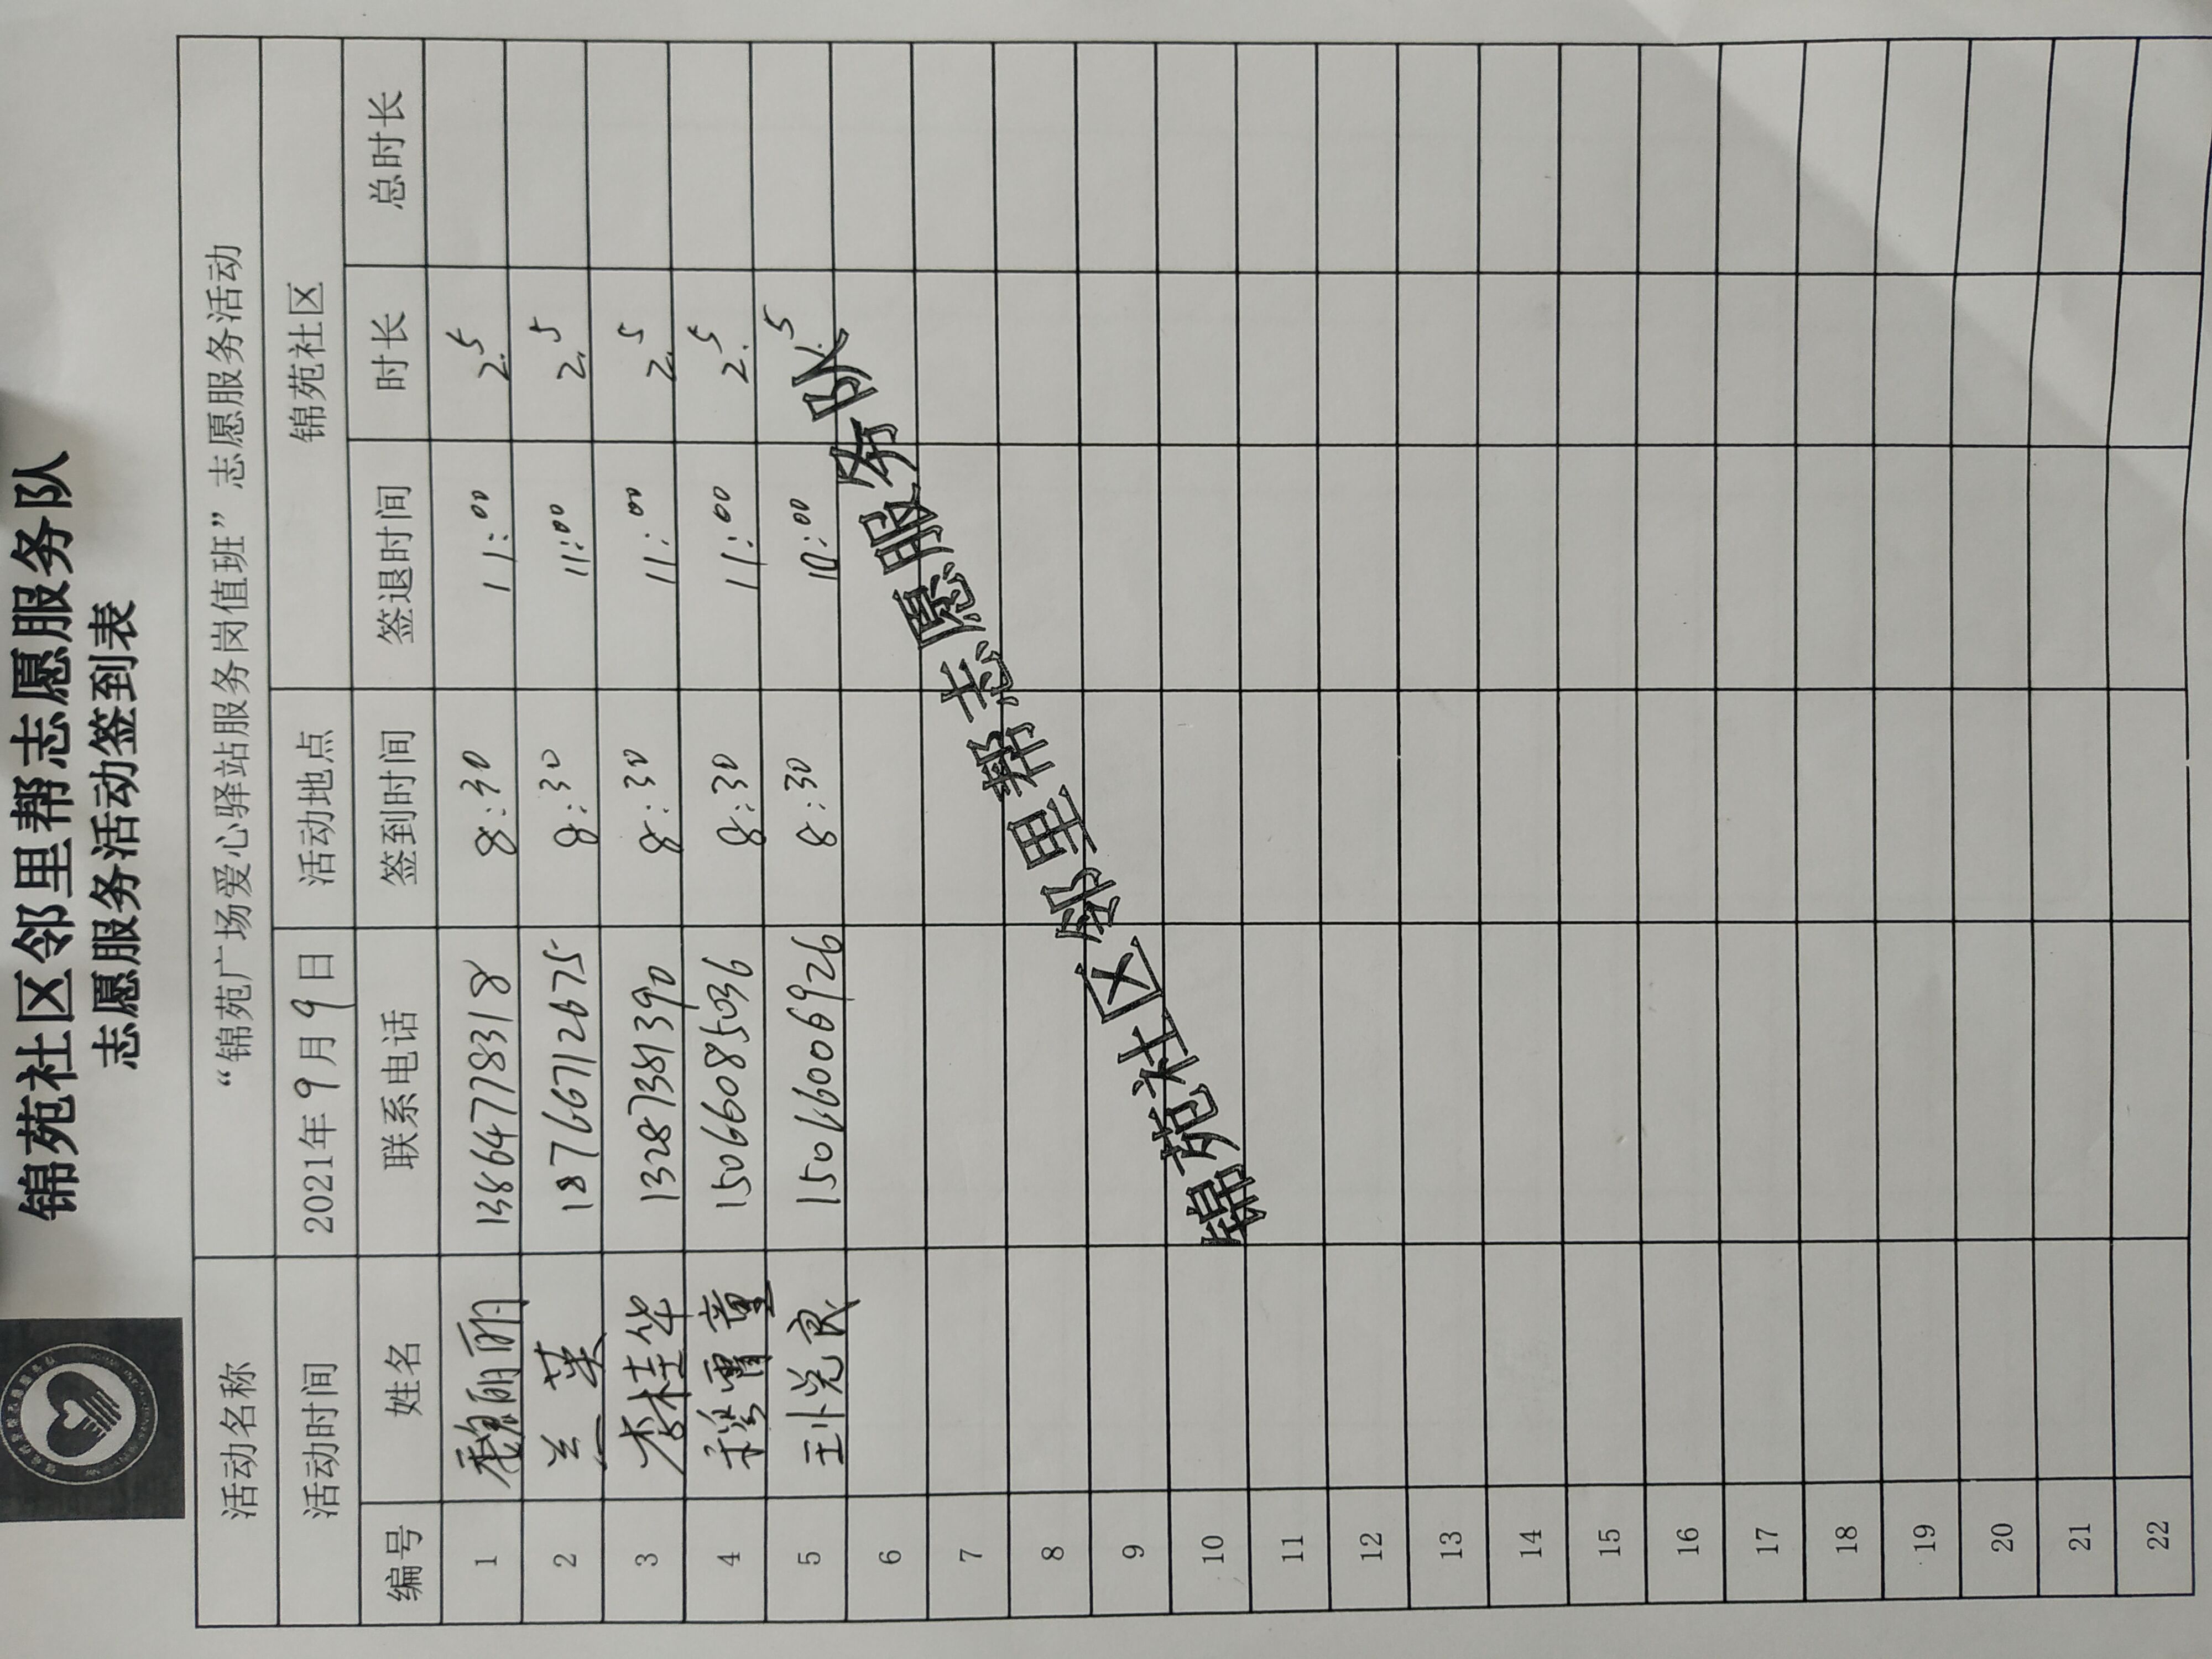 锦苑社区邻里帮志愿服务队
志愿服务活动签到表
活动名称 “锦苑广场爱心驿站服务岗值班”志愿服务活动
活动时间 2021年9月9日 活动地点 锦苑社区
编号 姓名 联系电话 签到时间 签退时间 时长 总时长
1 魏丽丽 13864778318 8:30 11:00 2.5
2 兰英 18766712675 8:30 11:00 2.5
3 李桂华 13287381390 8:30 11:00 2.5
4 15066085036 8:30 11:00 2.5
5 15066006926 8:30 10:00 1.5
6
7
8
9
10
11
12
13
14
15
16
17
18
19
20
21
22
锦苑社区邻里帮志愿服务队